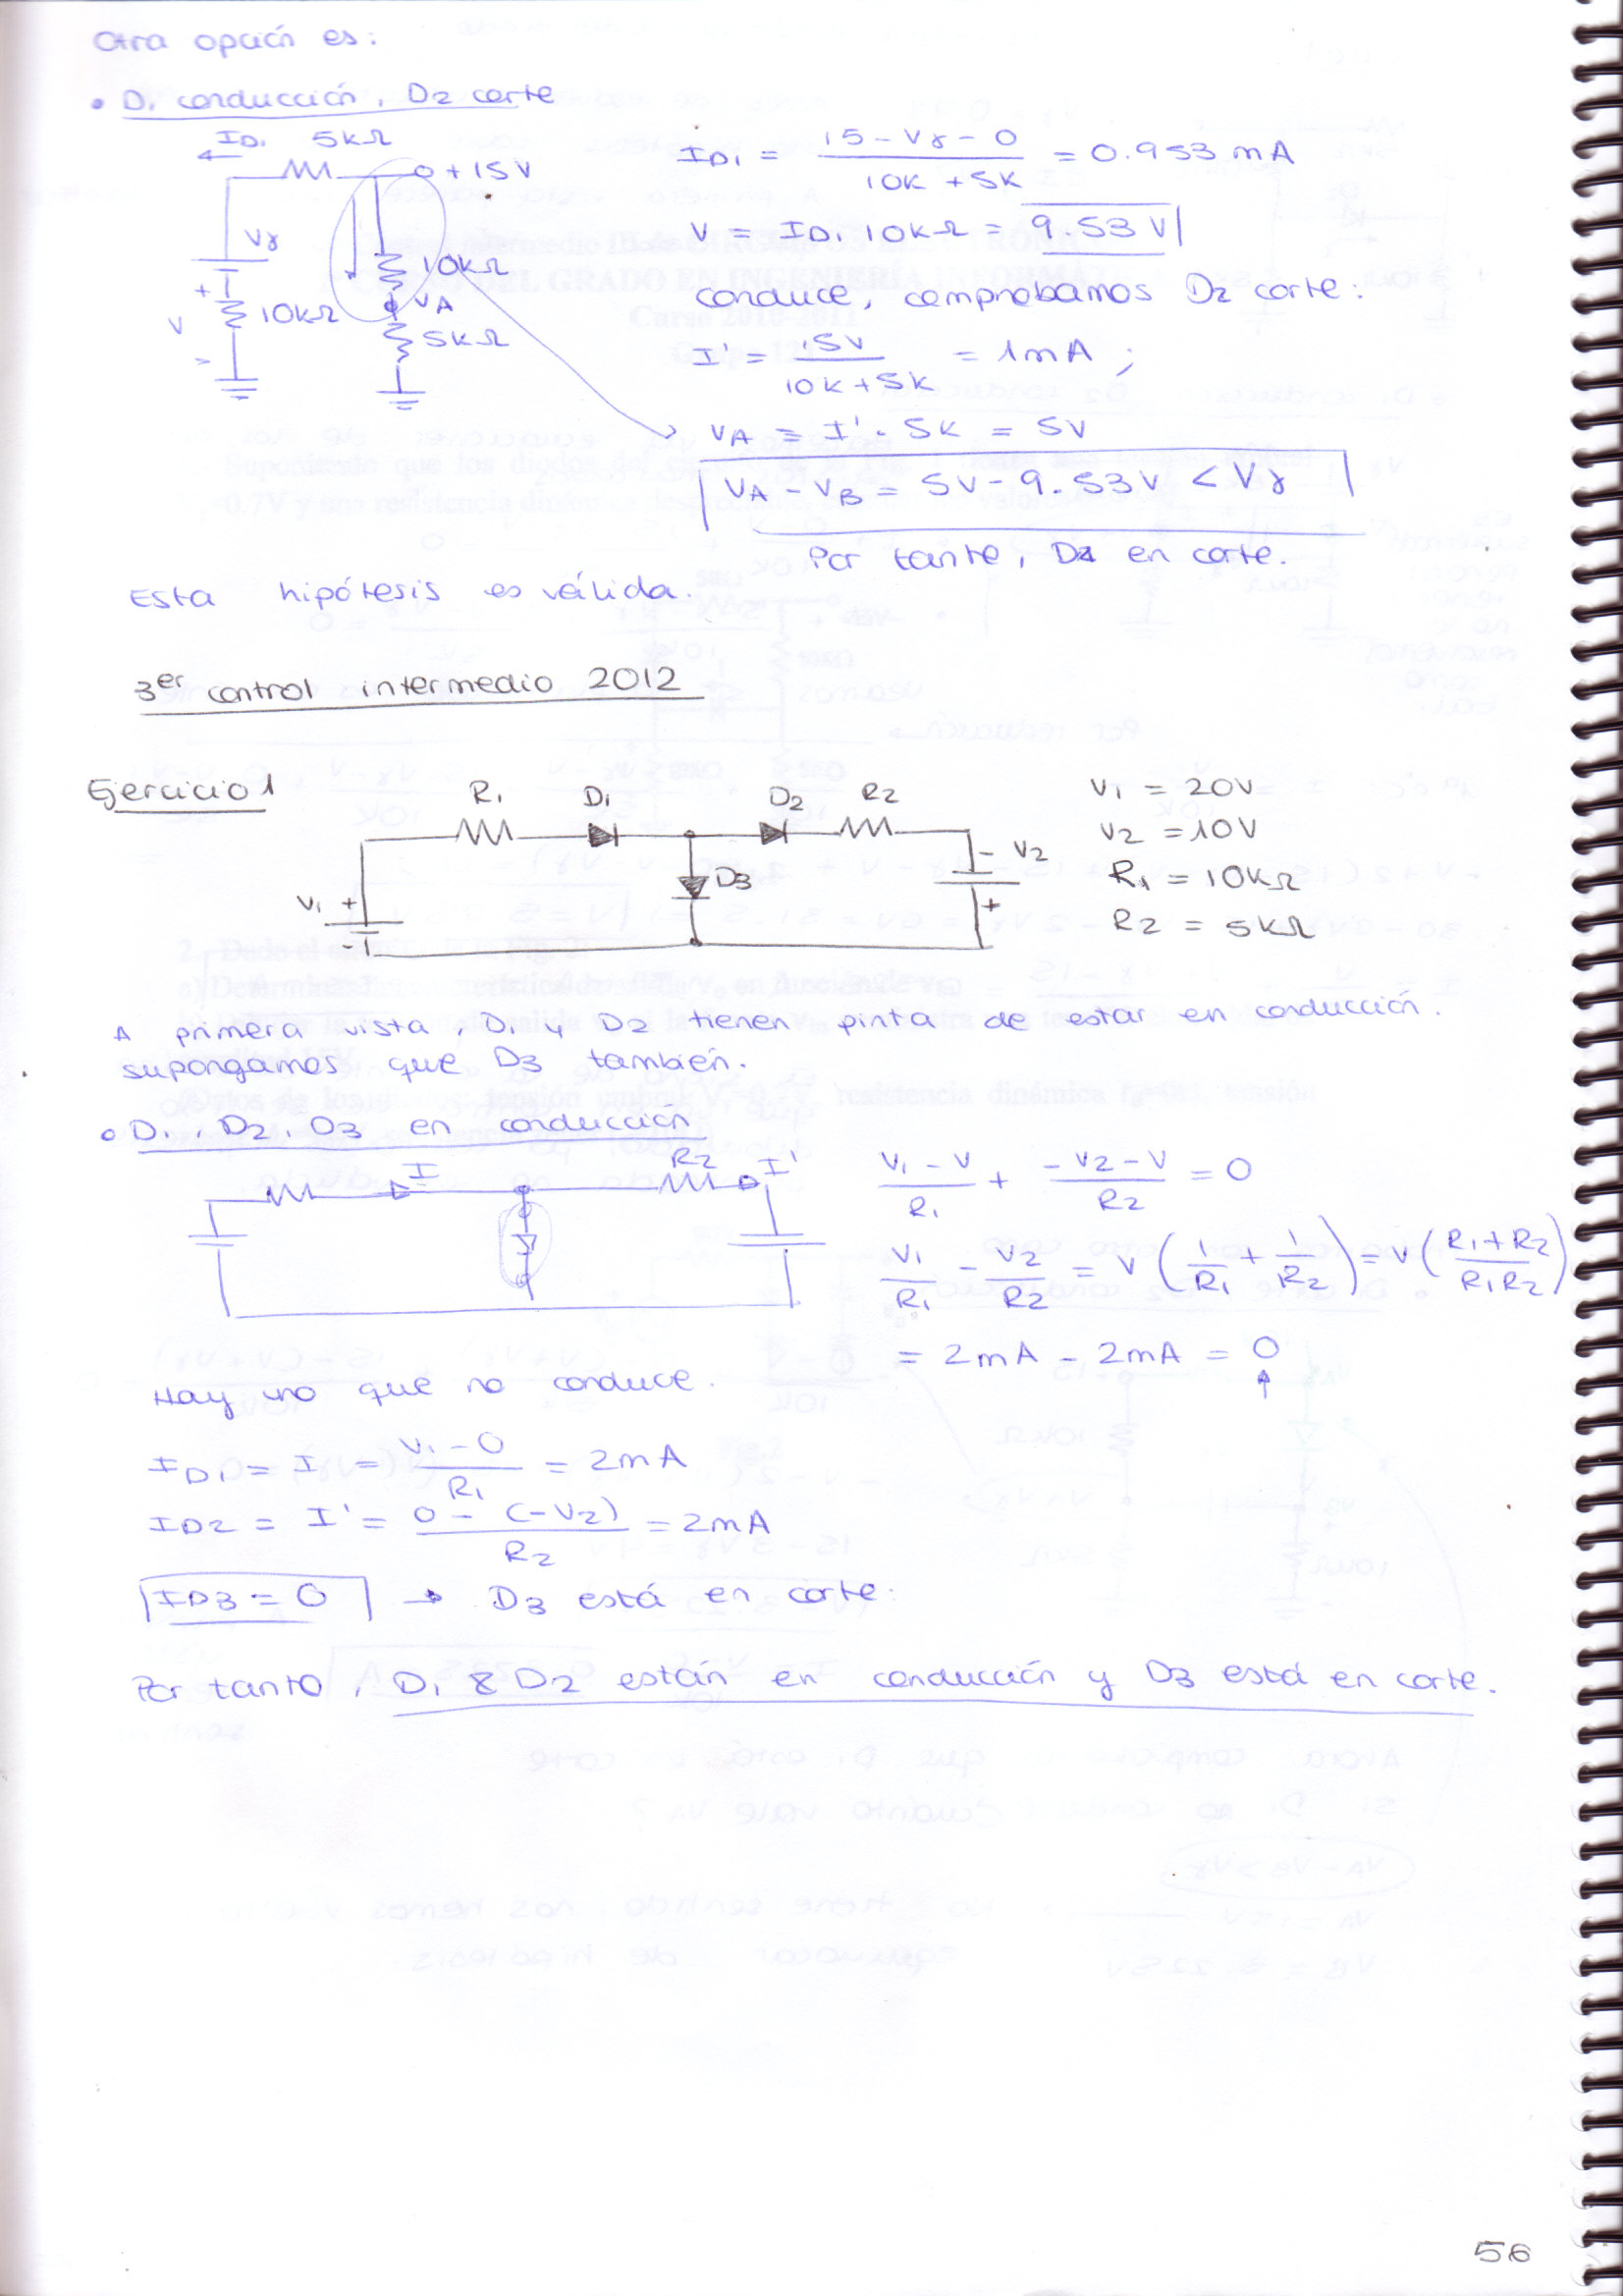 Otra opción es:
• D1 conducción, D2 corte
ID1 5kΩ
0+15V
Vγ
10kΩ
+
VA
V
10kΩ
5kΩ
-
ID1 = (15-Vγ-0)/(10k+5k) = 0.953mA
V = ID1 10kΩ = 9.53V
conduce, comprobamos D2 corte:
I' = 15V/(10k+5k) = 1mA;
VA = I'·5k = 5V
VA-VB = 5V-9.53V < Vγ
Por tanto, D2 en corte.
Esta hipótesis es válida.
3er control intermedio 2012
Ejercicio 1
R1 D1 D2 R2
D3
V1 + -
- V2 +
V1 = 20V
V2 = 10V
R1 = 10kΩ
R2 = 5kΩ
A primera vista, D1 y D2 tienen pinta de estar en conducción.
supongamos que D3 también.
• D1, D2, D3 en conducción
I R2 I'
(V1-V)/R1 + (-V2-V)/R2 = 0
V1/R1 - V2/R2 = V(1/R1 + 1/R2) = V((R1+R2)/(R1R2))
= 2mA - 2mA = 0
Hay uno que no conduce.
ID1 = I = (V1-0)/R1 = 2mA
ID2 = I' = (0-(-V2))/R2 = 2mA
ID3 = 0 → D3 está en corte.
Por tanto, D1 & D2 están en conducción y D3 está en corte.
56